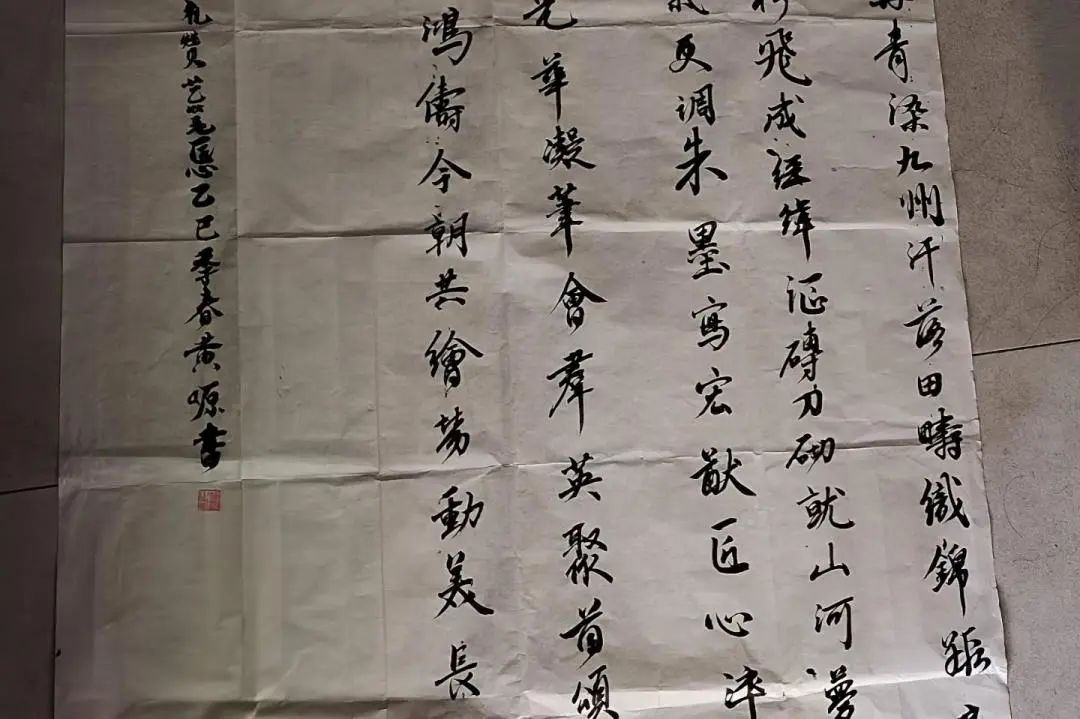 青染九州汗落田疇織錦
飛成経緯泥磚刀砌就山河夢
更调朱墨寫宏猷匠心淬
光華凝筆會群英聚首頌
鴻儔今朝共繪勞動美長
礼赞艺苑毛恩乙巳季春黄嫄書